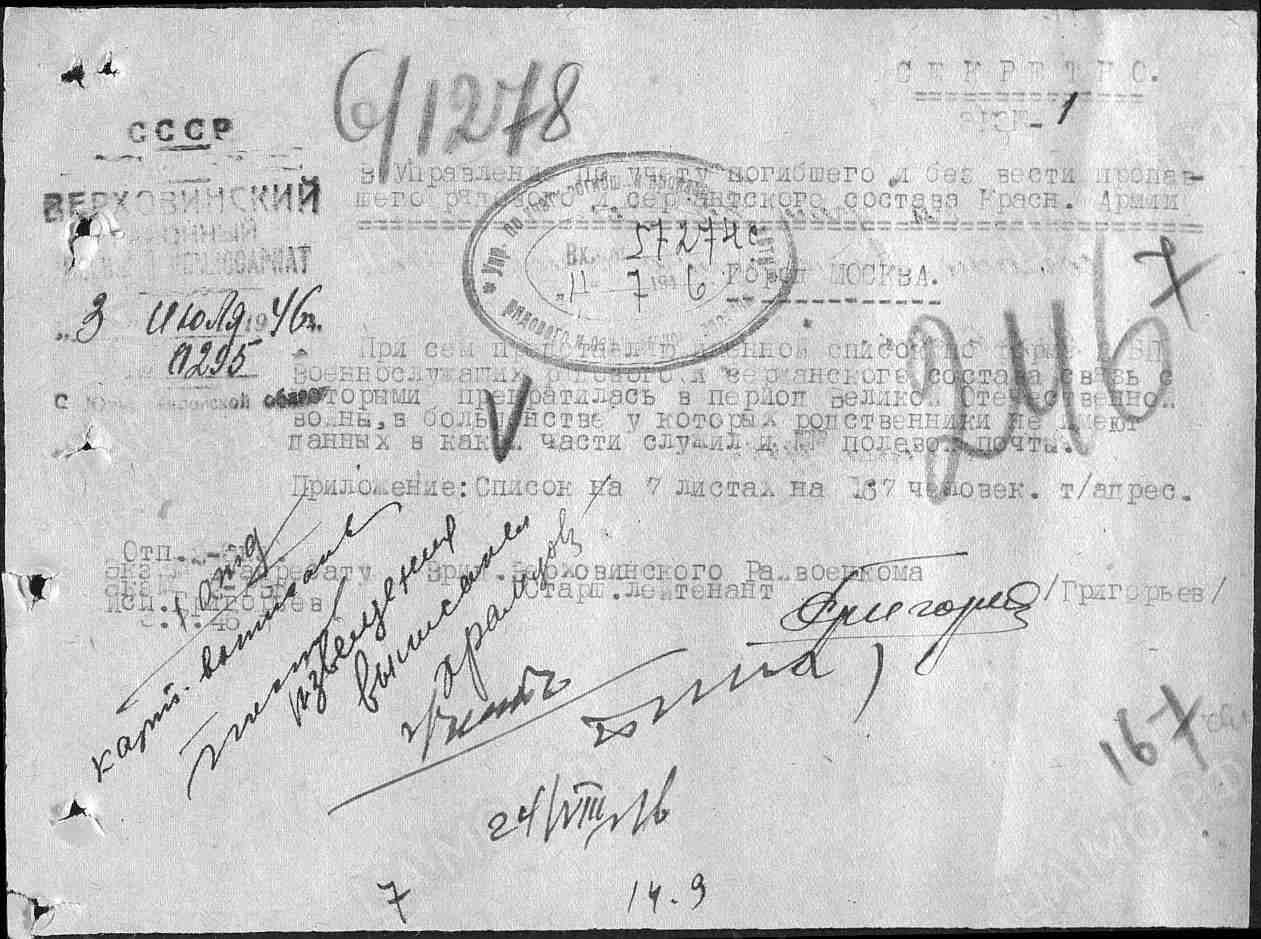 6/1278
СЕКРЕТНО.
ЭКЗ- 1
СССР
ВЕРХОВИНСКИЙ
"3 июля 1946 г.
1295
с Юмы Кировской области
в Управление по учету погибшего и без вести пропав-
шего рядового и сержантского состава Красн. Армии
Упр. по учету погибш. и
рядового и
Вх.
57274с
"11" 7 194 6
Город МОСКВА.
246
При сем представляю именной список по форме
военнослужащих рядового и сержанского состава связь с
которыми прекратилась в период Великой Отечественной
войны, в большинстве у которых родственники не имеют
данных в какой части служил и № полевой почты.
Приложение: Список на 7 листах на 167 человек. т/адрес.
Отп. 2-экз
адресату
исп. Григорьев
Врид. Верховинского Райвоенкома
Старш. лейтенант /Григорьев/
Григорьев
карт.
извещения
выписаны
167
24/VIII 46
7
14.9